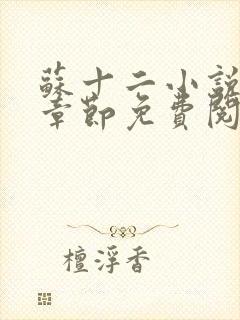 蘇十二小說
章節免費閱
檀浮香